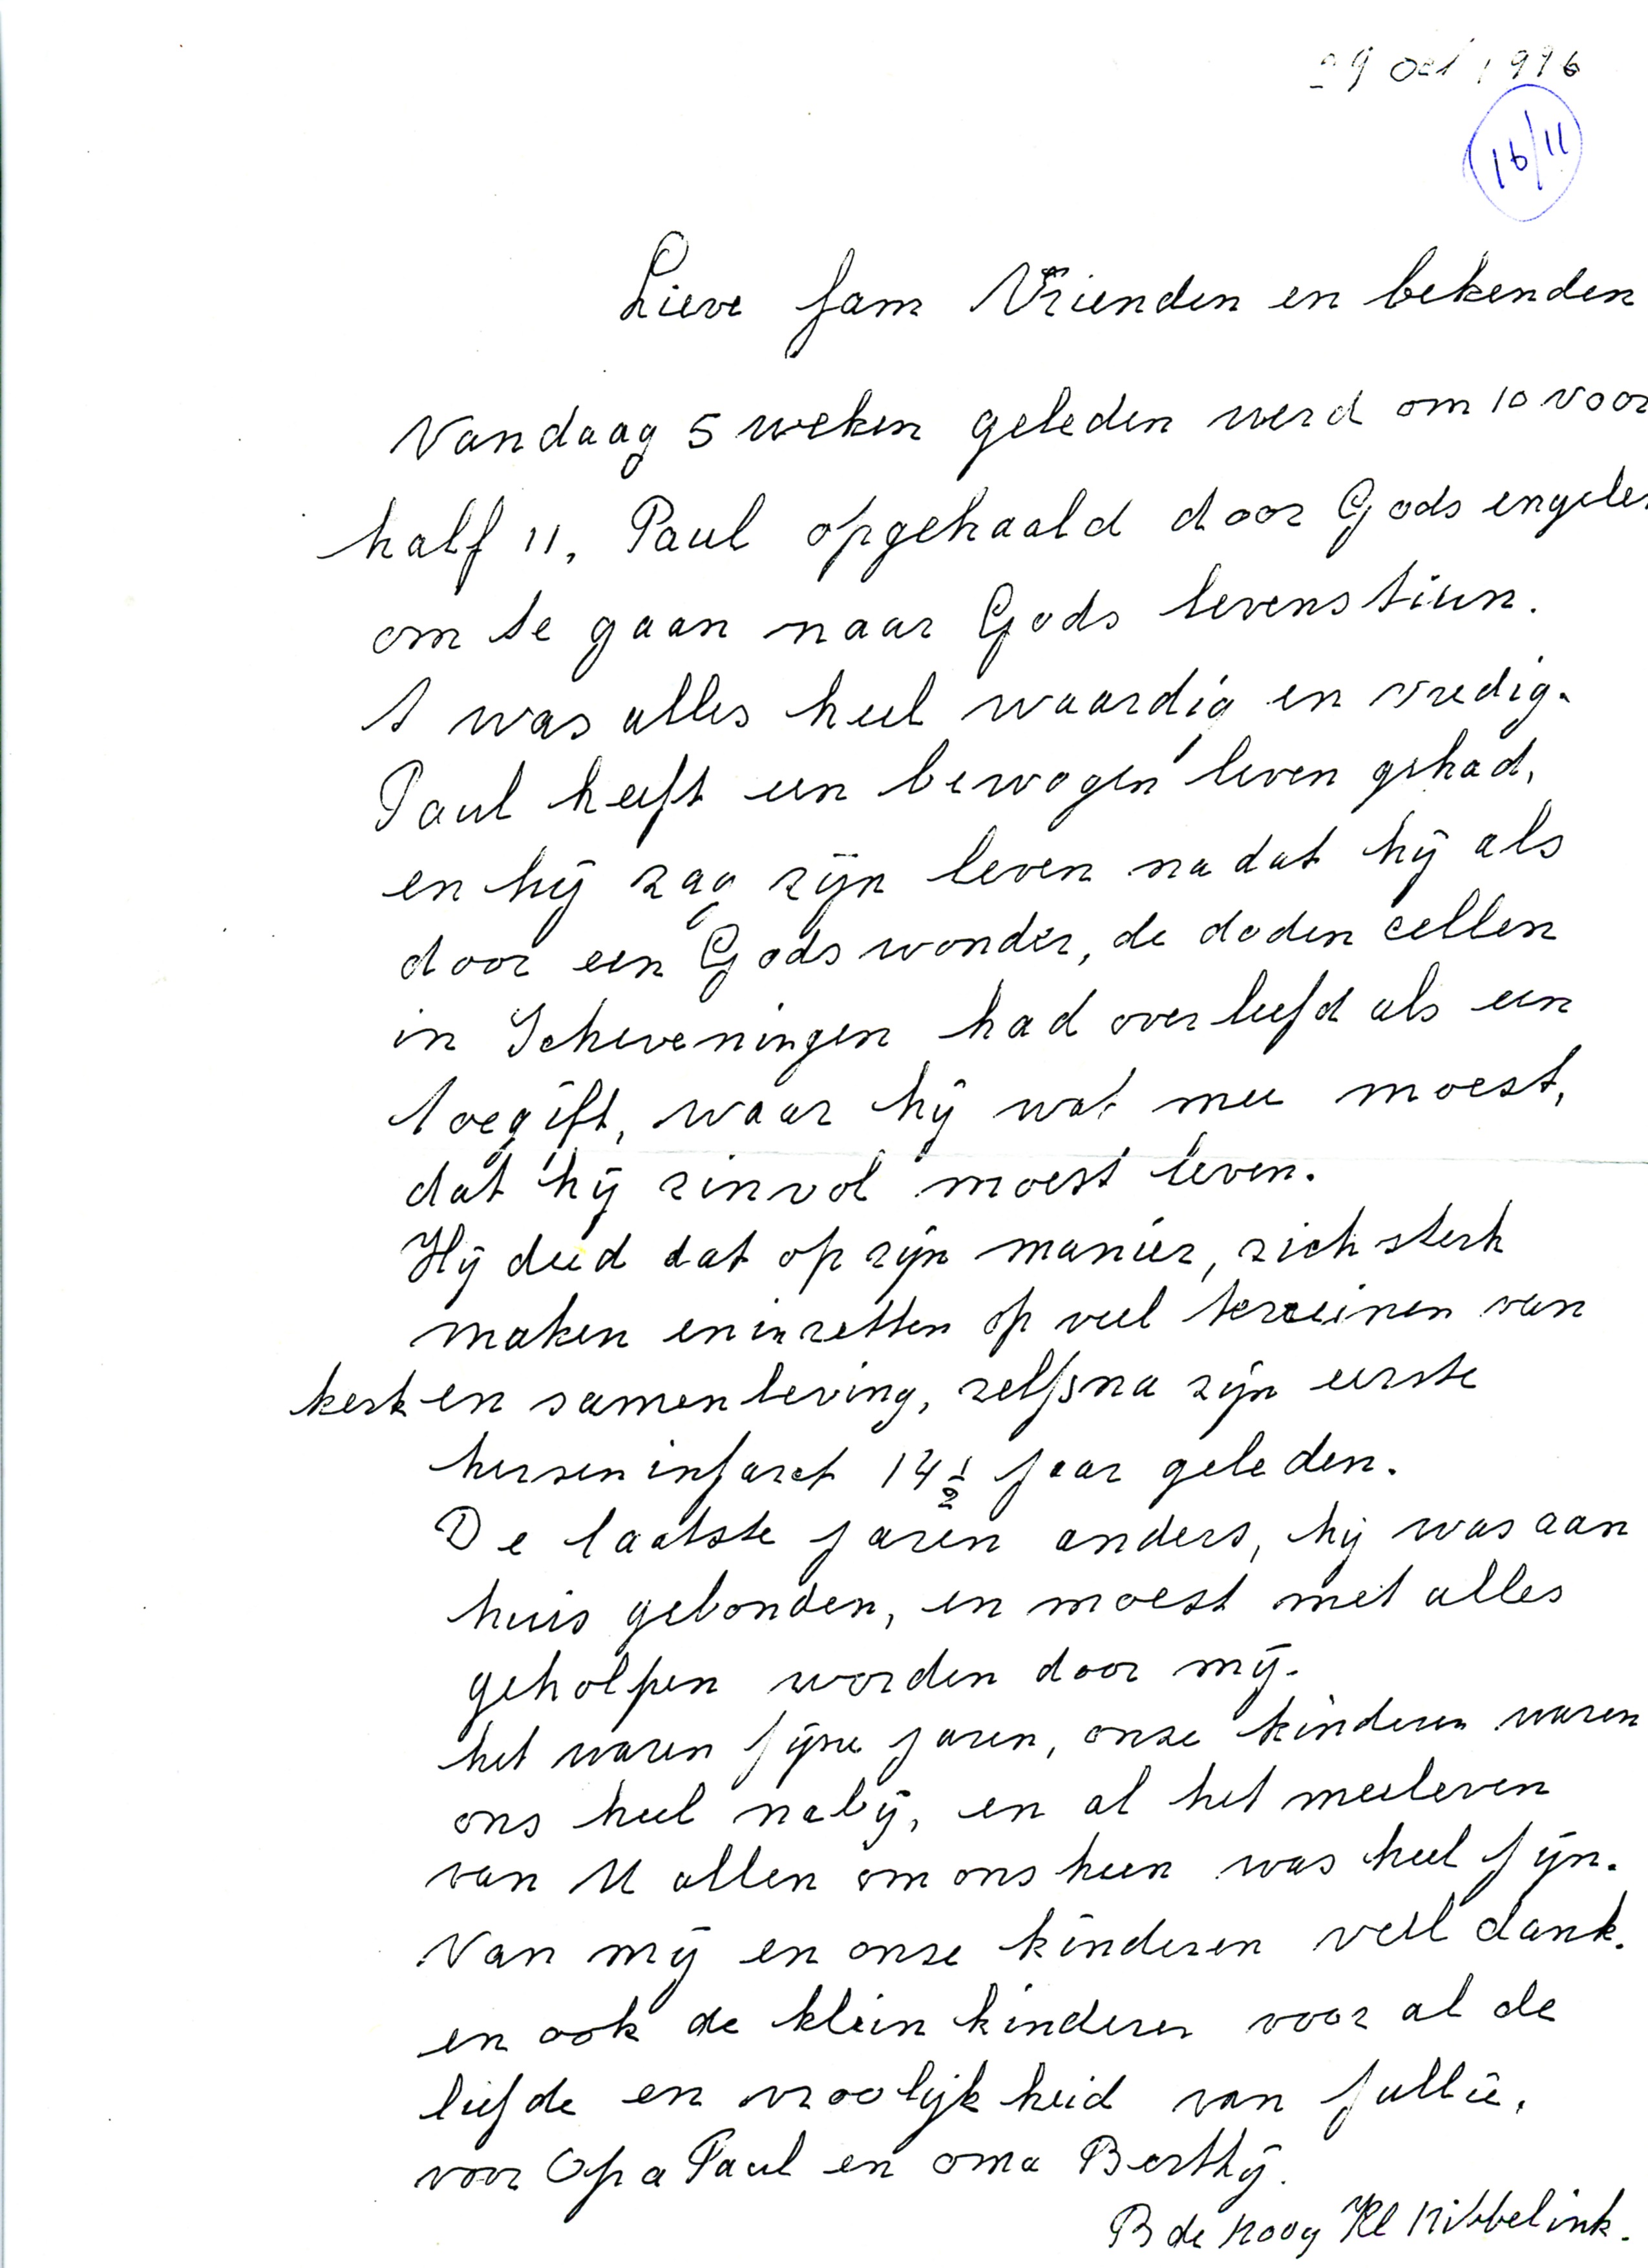 29 oct 1996
16/11
Lieve fam Vrienden en bekenden
Vandaag 5 weken geleden werd om 10 voor
half 11, Paul opgehaald door Gods engelen
om te gaan naar Gods levenstuin.
t was alles heel waardig en vredig.
Paul heeft een bewogen leven gehad,
en hij zag zijn leven na dat hij als
door een Gods wonder, de doden cellen
in Scheveningen had overleefd als een
toegift, waar hij wat mee moest,
dat hij zinvol moest leven.
Hij deed dat op zijn manier, zich sterk
maken en inzetten op veel terreinen van
kerk en samenleving, zelfs na zijn eerste
herseninfarct 14 1/2 jaar geleden.
De laatste jaren anders, hij was aan
huis gebonden, en moest met alles
geholpen worden door mij.
het waren fijne jaren, onze kinderen waren
ons heel nabij, en al het meeleven
van U allen om ons heen was heel fijn.
Van mij en onze kinderen veel dank.
en ook de klein kinderen voor al de
liefde en vroolijkheid van jullie,
voor Opa Paul en oma Berthij.
B de Rooy Kl Ribbelink.